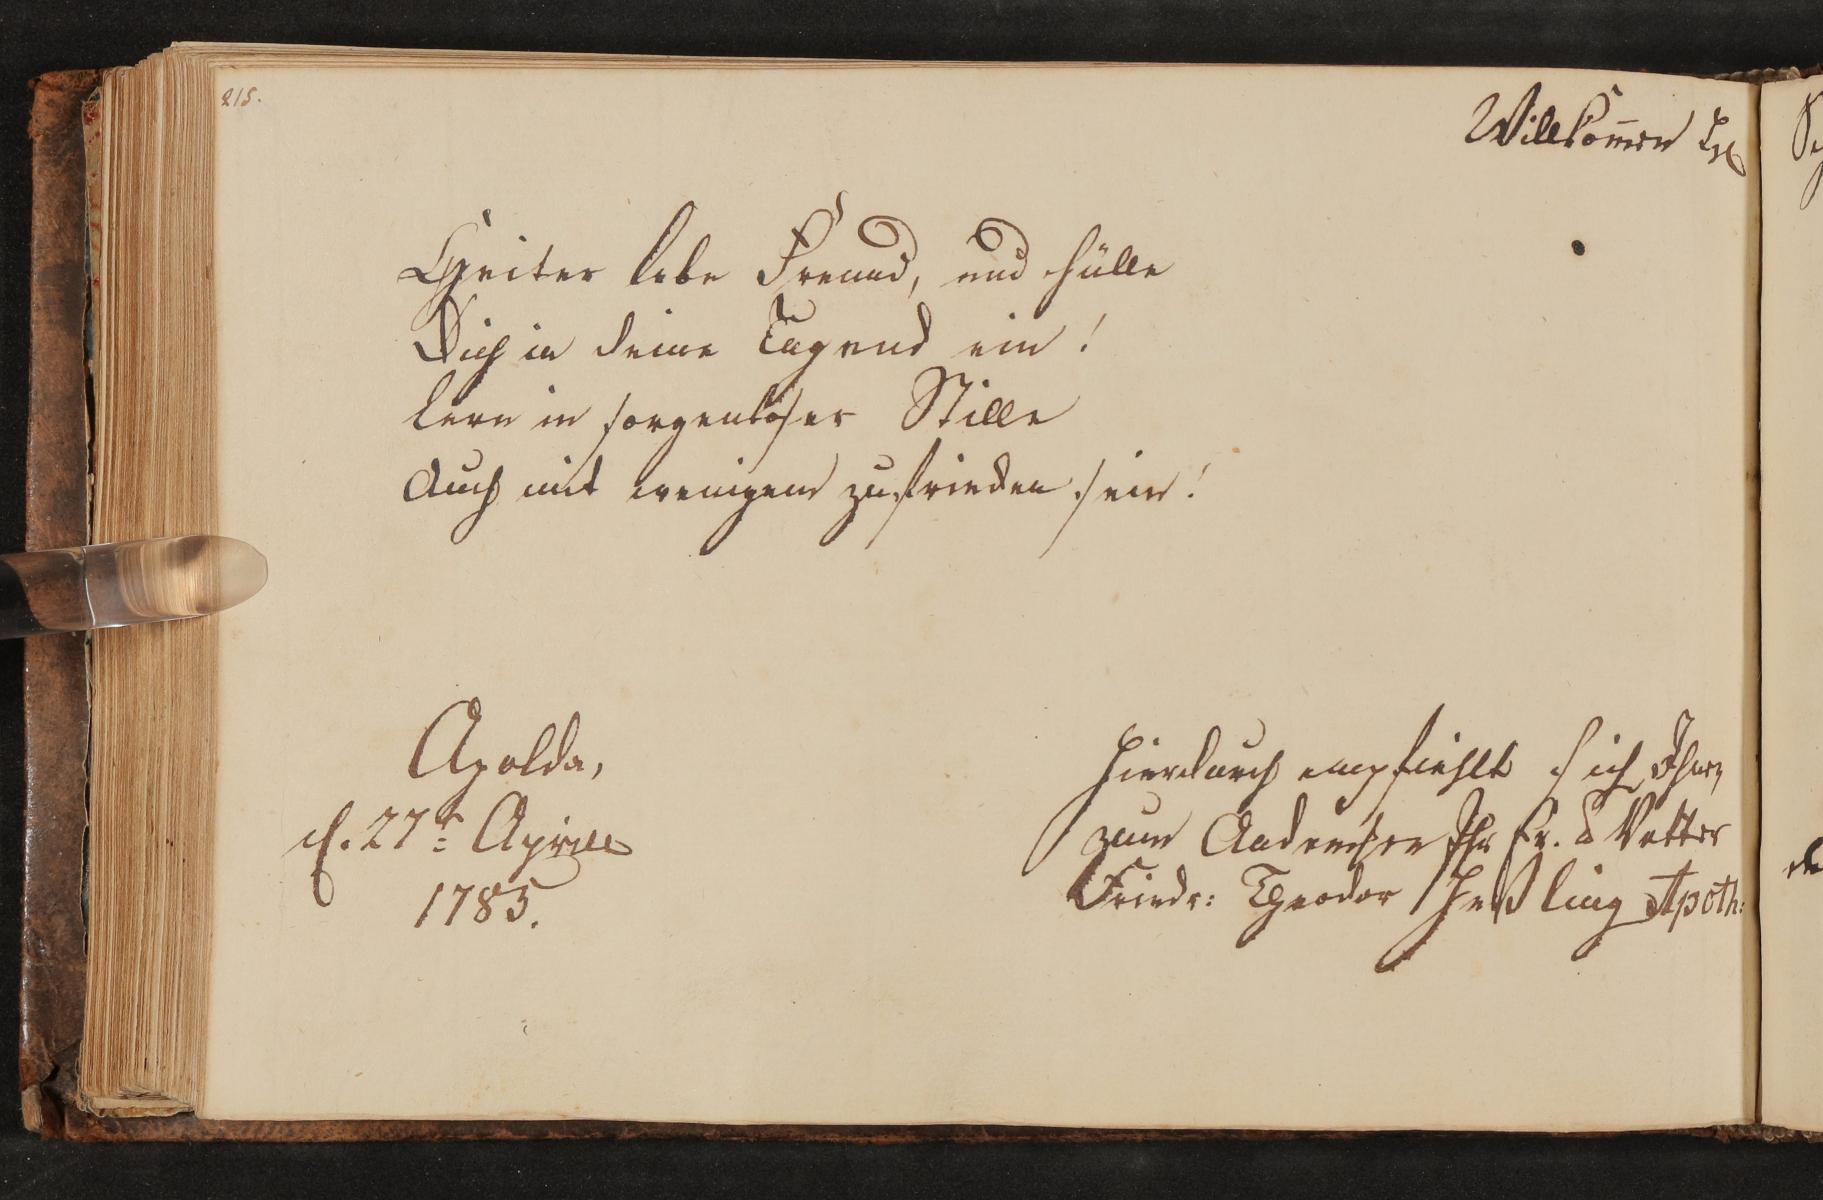 215.
Willkom̅en
Heiter lebe Freund, und hülle
Dich in deine Tugend ein!
lern in sorgenloser Stille
Auch mit wenigem zufrieden sein!
Apolda,
d. 27t: Aprill
1785.
hierdurch empfiehlt sich Ihnen
zum Andencken Ihr Fr. & Vetter
Friedr: Theodor Heßling Apoth: